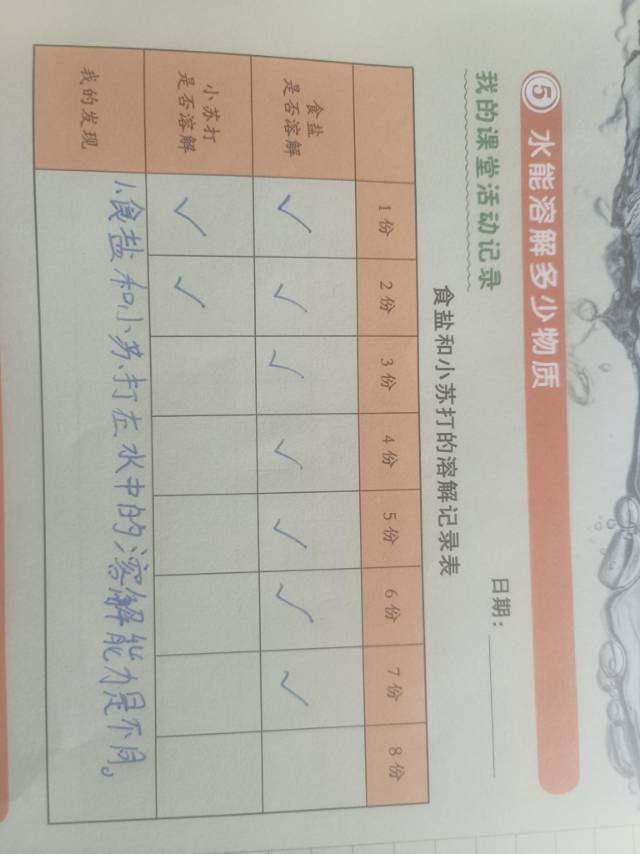 5 水能溶解多少物质
我的课堂活动记录
日期：
食盐和小苏打的溶解记录表
1份 2份 3份 4份 5份 6份 7份 8份
食盐
是否溶解 ✓ ✓ ✓ ✓ ✓ ✓ ✓
小苏打
是否溶解 ✓ ✓
我的发现 1、食盐和小苏打在水中的溶解能力是不同。